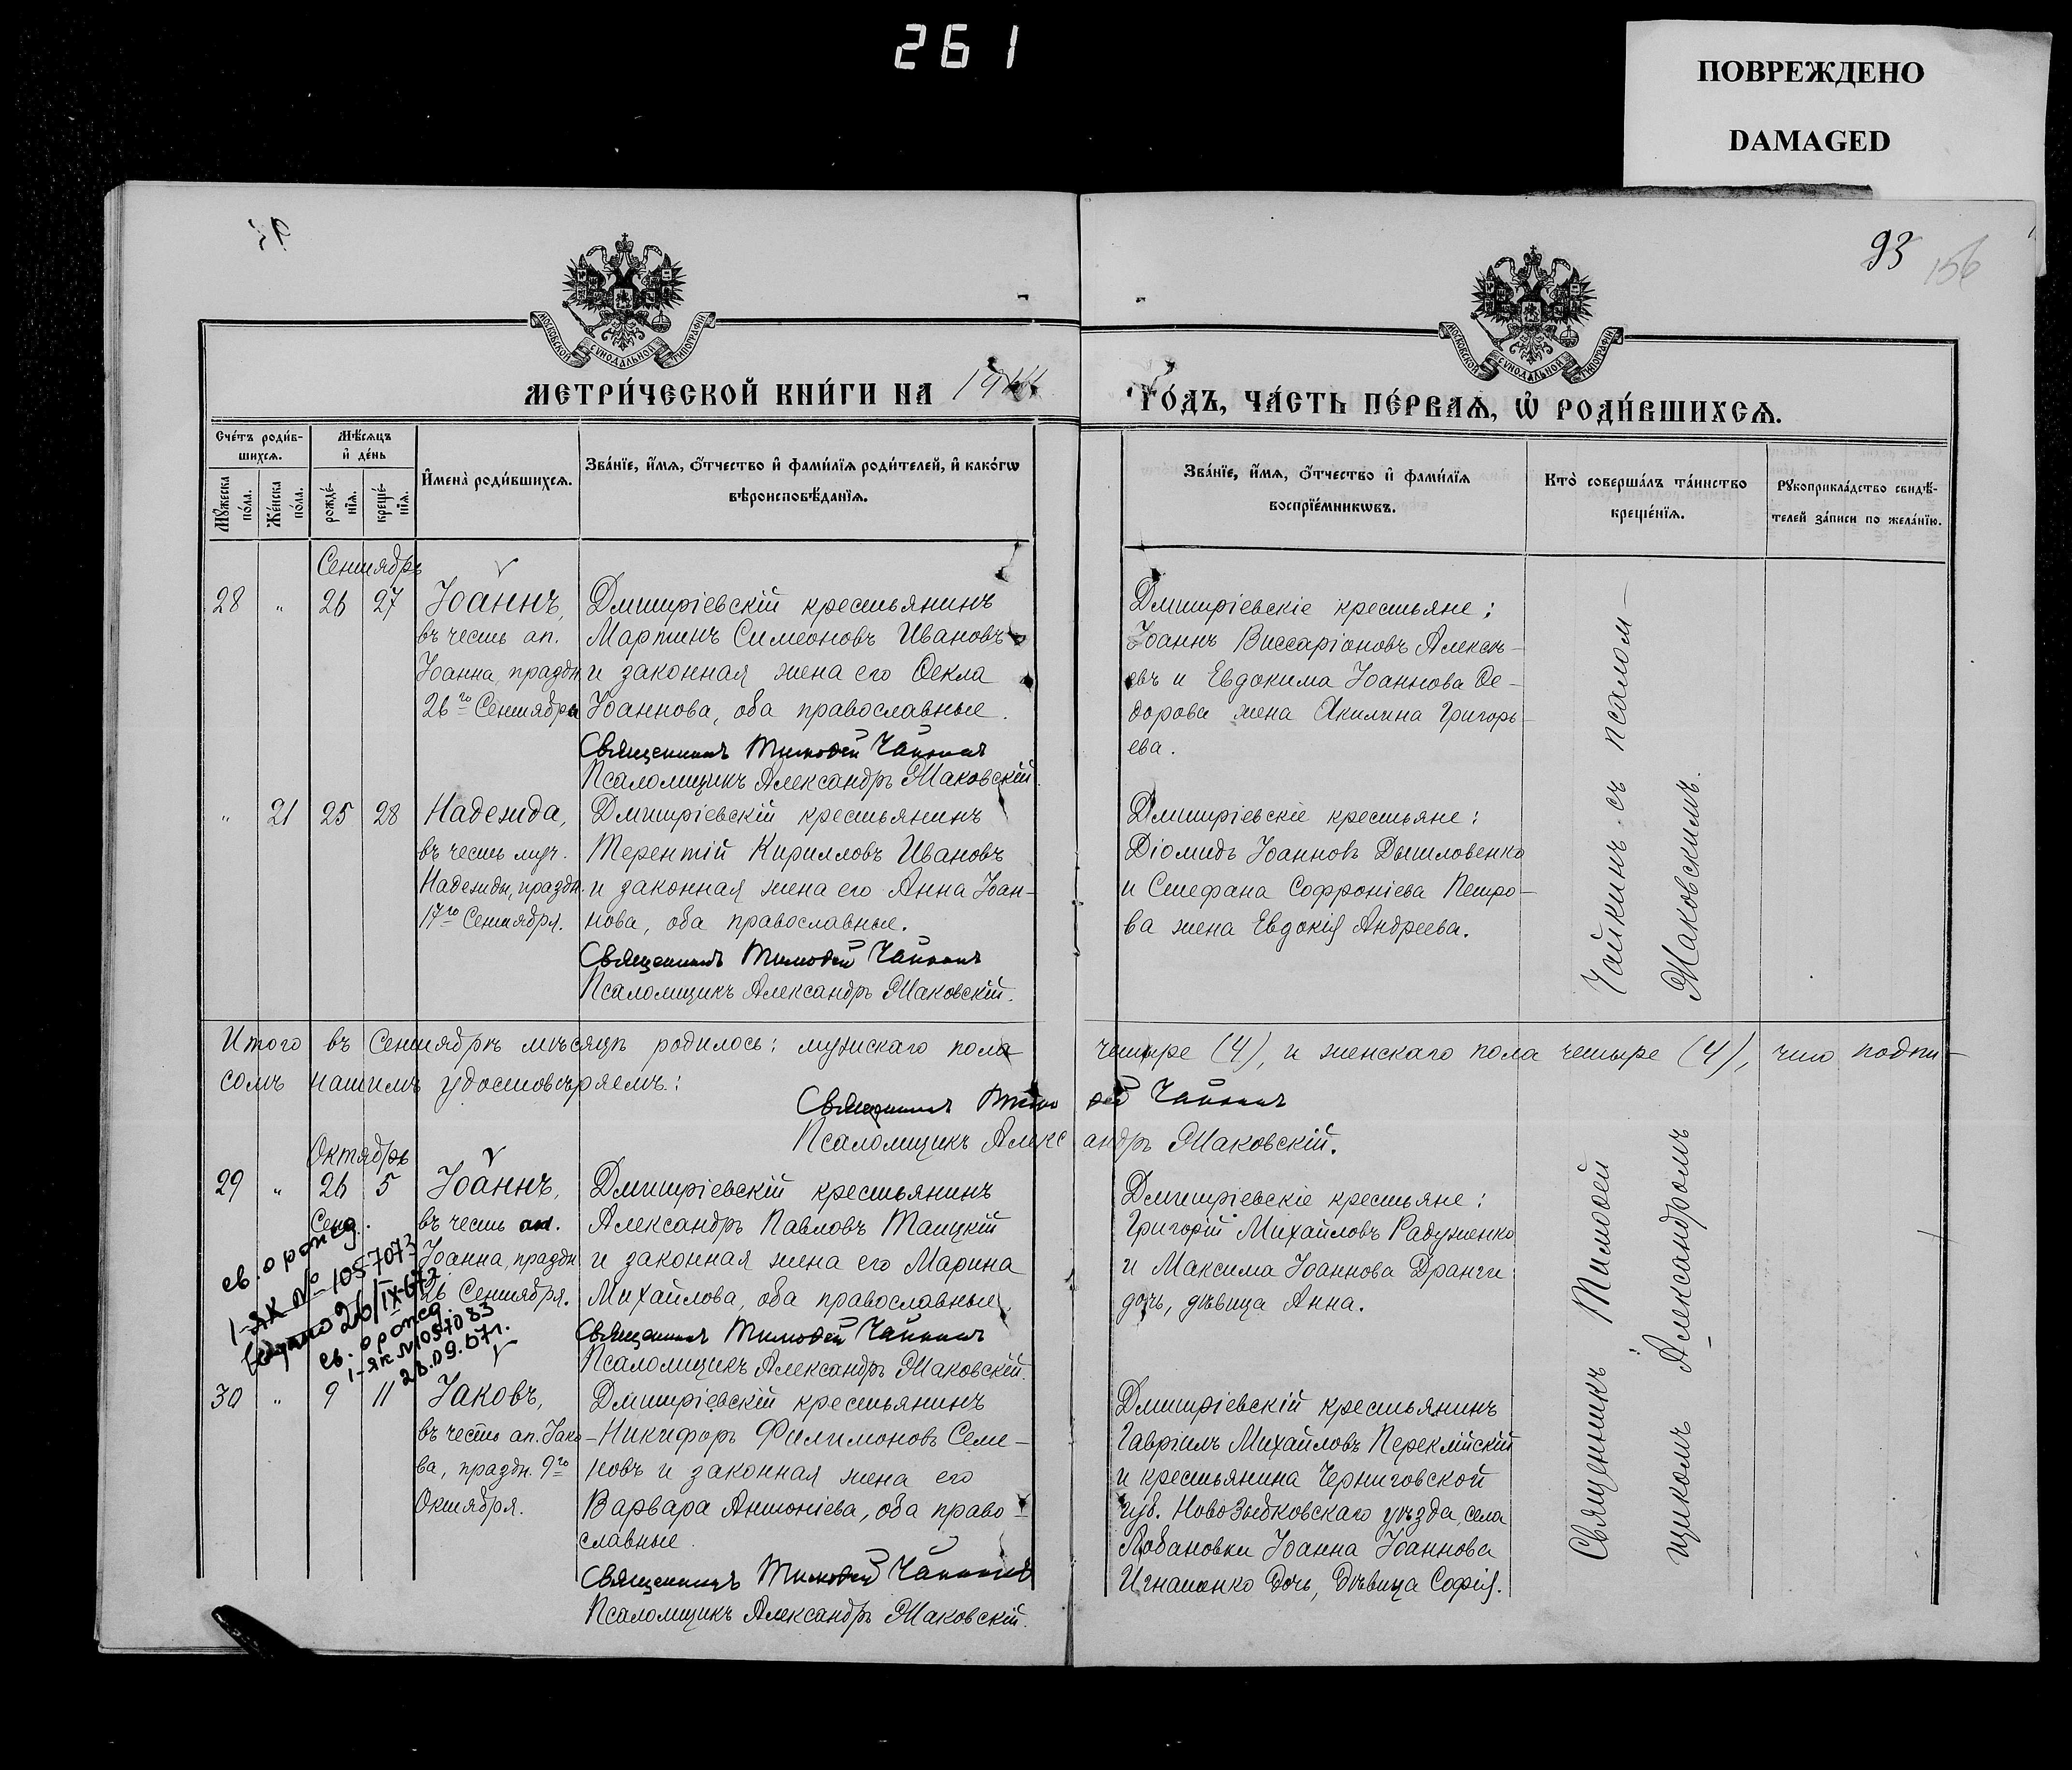 261
ПОВРЕЖДЕНО
DAMAGED
93
156
МОСКОВСКОЙ СѴНОДАЛЬНОЙ ТИПОГРАФІИ
МОСКОВСКОЙ СѴНОДАЛЬНОЙ ТИПОГРАФІИ
МЕТРИ́ЧЕСКОЙ КНИ́ГИ НА
ГО́ДЪ, ЧА́СТЬ ПЕ́РВАѦ, Ѡ҆ РОДИ́ВШИХСѦ.
Сче́тъ роди́в-
шихсѧ.
Мѣ́сѧцъ
и҆ де́нь
И҆мена̀ роди́вшихсѧ.
Зва́нїе, и҆́мѧ, ѻ҆́тчество и҆ фами́лїѧ роди́телей, и҆ како́гѡ
вѣроисповѣ́данїѧ.
Мꙋ́жеска
по́ла.
Же́нска
по́ла.
рожде́-
нїѧ.
креще́-
нїѧ.
Зва́нїе, и҆́мѧ, ѻ҆́тчество и҆ фами́лїѧ
воспрїе́мникѡвъ.
Кто̀ соверша́лъ та́инство
креще́нїѧ.
Рꙋкоприкла́дство свидѣ́-
телей за́писи по жела́нїю.
Сентябрь
28 " 26 27 Іоаннъ,
въ честь ап.
Іоанна, праздн.
26го Сентября
Дмитріевскій крестьянинъ
Мартинъ Симеоновъ Ивановъ
и законная жена его Ѳекла
Іоаннова, оба православные.
Священникъ Тимоѳей Чайкинъ
Псаломщикъ Александръ Маковскій.
Дмитріевскіе крестьяне:
Іоаннъ Виссаріоновъ Алексѣ-
евъ и Евдокима Іоаннова Ѳе-
дорова жена Акилина Григорь-
ева.
" 21 25 28 Надежда,
въ честь муч.
Надежды, праздн.
17го Сентября.
Дмитріевскій крестьянинъ
Терентій Кирилловъ Ивановъ
и законная жена его Анна Іоан-
нова, оба православные.
Священникъ Тимоѳей Чайкинъ
Псаломщикъ Александръ Маковскій.
Дмитріевскіе крестьяне:
Діомидъ Іоанновъ Дышловенко
и Стефана Софроніева Петро-
ва жена Евдокія Андреева.
Итого въ Сентябрѣ мѣсяцѣ родилось: мужскаго пола четыре (4), и женскаго пола четыре (4), что подпи-
сомъ нашимъ удостовѣряемъ:
Священникъ Тимоѳей Чайкинъ
Псаломщикъ Александръ Маковскій.
Октябрь
29 " 26 5 Іоаннъ,
Сент.
въ честь ап.
Іоанна, праздн.
26 Сентября.
Дмитріевскій крестьянинъ
Александръ Павловъ Таицкій
и законная жена его Марина
Михайлова, оба православные.
Священникъ Тимоѳей Чайкинъ
Псаломщикъ Александръ Маковскій.
Дмитріевскіе крестьяне:
Григорій Михайловъ Радуженко
и Максима Іоаннова Дранги
дочь, дѣвица Анна.
св. о рожд.
1-ЯК № 1057073
св. о рожд.
1-ЯК №1057083
28.09.67г.
30 " 9 11 Іаковъ,
въ честь ап. Іако-
ва, праздн. 9го
Октября.
Дмитріевскій крестьянинъ
Никифоръ Филимоновъ Семе-
новъ и законная жена его
Варвара Антоніева, оба право-
славные.
Священникъ Тимоѳей Чайкинъ
Псаломщикъ Александръ Маковскій.
Дмитріевскій крестьянинъ
Гавріилъ Михайловъ Переклійскій
и крестьянина Черниговской
губ. Новозыбковскаго уѣзда, села
Лобановки Іоанна Іоаннова
Игнатенко дочь, дѣвица Софія.
Священникъ Тимоѳей Чайкинъ съ псалом-
щикомъ Александромъ Маковскимъ.